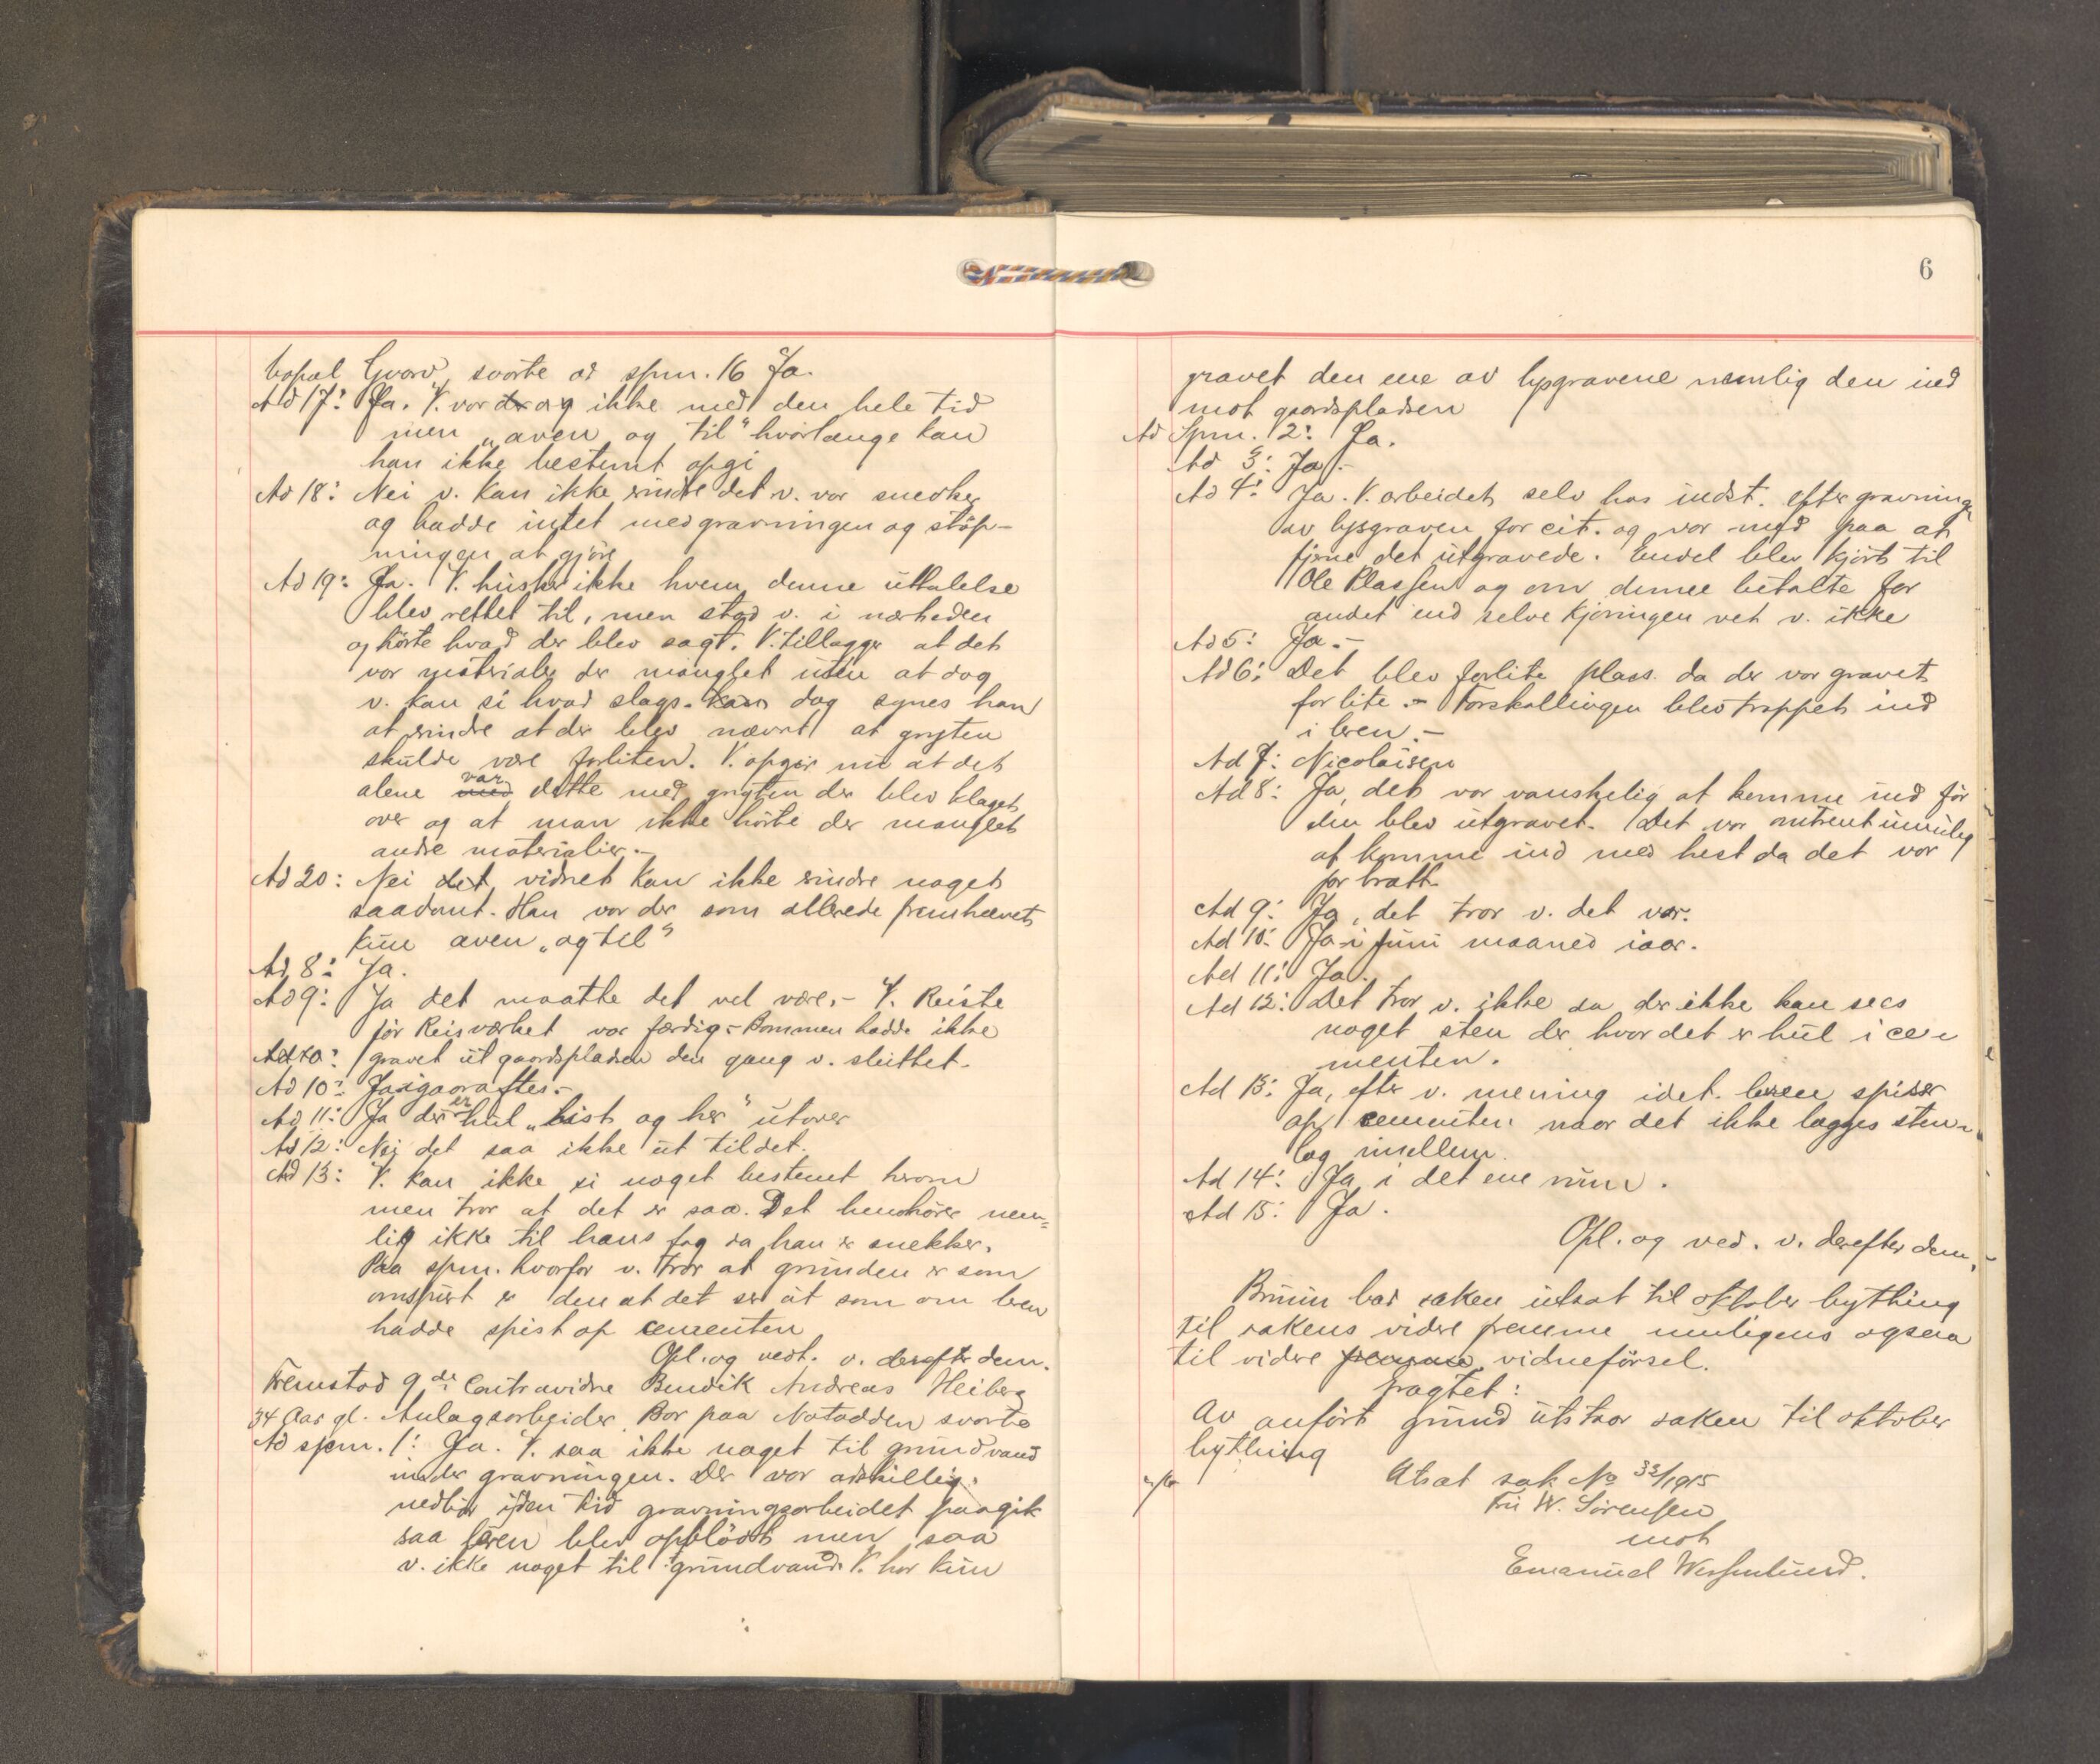 bopæl Gvarv, svarte ad spm. 16 Ja.
Ad 17: Ja. V. var der og ikke med den hele tid
men "aven og til" hvorlænge kan
han ikke bestemt opgi
Ad 18: Nei v. kan ikke erindre det v. var snedker
og hadde intet med gravningen og støp-
ningen at gjøre
Ad 19: Ja. V. husker ikke hvem denne uttalelse
blev rettet til, men stod v. i nærheden
og hørte hvad der blev sagt. V. tillægger at det
var materialer der manglet uten at dog
v. kan si hvad slags. Kan dog synes han
at erindre at der blev nævnt at gryten
skulde være forliten. V. opgir nu at det
alene var dette med gryten der blev klaget
over og at man ikke hørte der manglet
andre materialier.-
Ad 20: Nei det vidnet kan ikke erindre noget
saadant. Han var der som allerede fremhævet
kun aven "og til"
Ad 8: Ja.
Ad 9: Ja det maatte det vel være.- V. Reiste
før Reisverket var færdig - Bommen hadde ikke
Ad 10: gravet ut gaardspladsen den gang v. sluttet.
Ad 10: Ja igaaraftes.-
Ad 11: Ja der er hul "hist og her" utover
Ad 12: Nei det saa ikke ut til det.
Ad 13: V. kan ikke si noget bestemt herom
men tror at det er saa. Det henhører nem=
lig ikke til hans fag da han er snekker.
Paa spm. hvorfor v. tror at grunden er som
omspurt er den at det ser ut som om leren
hadde spist op cementen
Opl. og vedt. v. derefter dem.
Fremstod 9de Contravidne Bendik Andreas Heiberg
34 Aar gl. Anlagsarbeider Bor paa Notodden svarte
Ad spm. 1: Ja. V. saa ikke noget til grundvand
under gravningen. Der var adskillig
nedbør i den tid gravningsarbeidet paagik
saa leren blev opblødt men saa
v. ikke noget til grundvand. V. har kun
6
gravet den ene av lysgravene nemlig den ind
mot gaardspladsen
Ad Spm. 2: Ja.
Ad 3: Ja.-
Ad 4: Ja. V. arbeidet selv hos indst. efter gravningen
av lysgraven for cit. og var med paa at
fjerne det utgravede. Endel blev kjørt til
Ole Klassen og om denne betalte for
andet end selve kjøringen vet v. ikke
Ad 5: Ja.-
Ad 6: Det blev forlite plass da der var gravet
for lite.- Forskallingen blev trappet ind
i leren.-
Ad 7: Nicolaisen
Ad 8: Ja, det var vanskelig at komme ind før
den blev utgravet. Det var omtrent umulig
at komme ind med hest da det var
for bratt.
Ad 9: Ja, det tror v. det var.
Ad 10: Ja i juni maaned iaar.
Ad 11: Ja.
Ad 12: Det tror v. ikke da der ikke kan sees
noget sten der hvor det er hul i ce-
menten.
Ad 13: Ja, efter v. mening idet leren spiser
op cementen naar det ikke lægges sten-
lag imellem.
Ad 14: Ja i det ene rum.
Ad 15: Ja.
Opl. og ved. v. derefter dem.-
Bruun bad saken utsat til oktober bything
til sakens videre fremme muligens ogsaa
til videre fremme vidneførsel.
Fragtet:
Av anført grund utstaar saken til oktober
bything
Utsat sak No 33/1915
Fru W. Sørensen
mot
Emanuel Wessenlund.